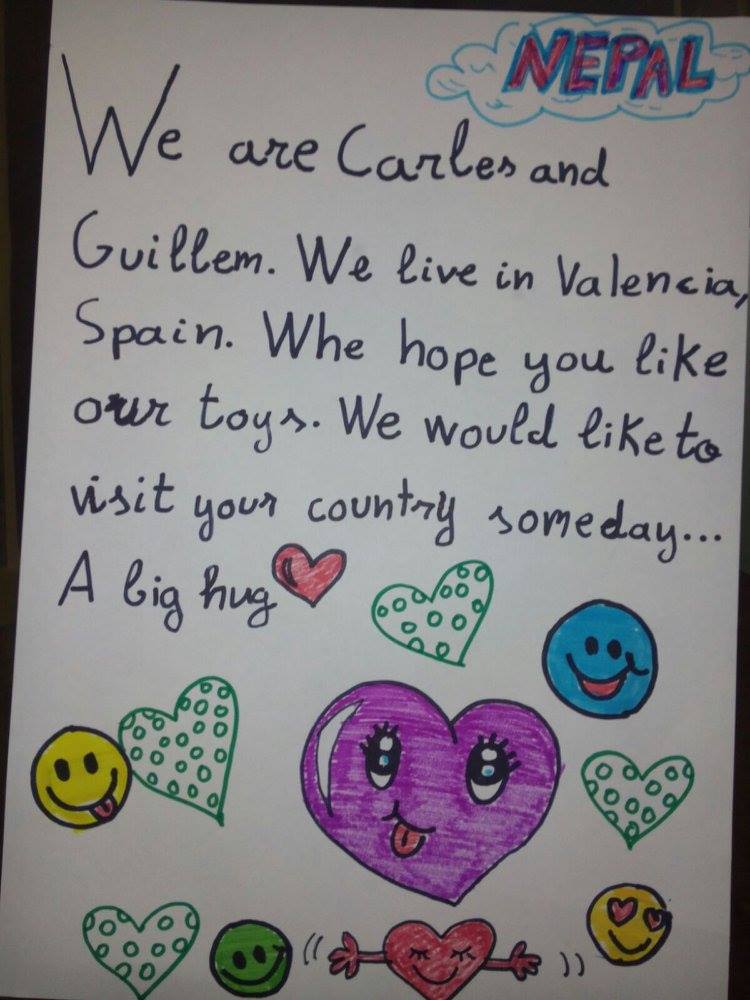 NEPAL
We are Carles and
Guillem. We live in Valencia,
Spain. Whe hope you like
our toys. We would like to
visit your country someday...
A big hug